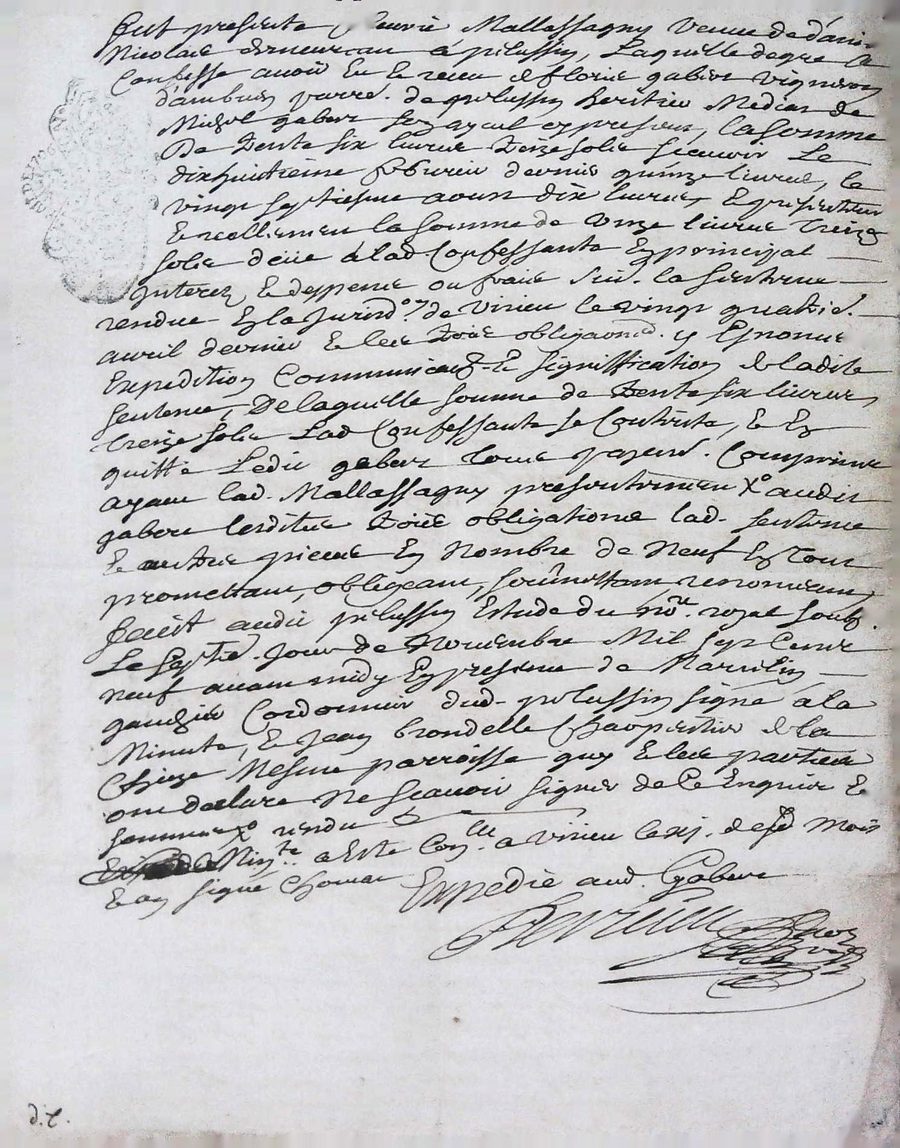 fut presente Mallassagny veuve de
Nicolas a pelussin, Laquelle de gre a
Confesse avoir eu et receu de fleurie gabert vigneron
parre. de pelussin heritier Median de
Michel gabert son ayeul cy present, la somme
De trente six livres treize solz scauoir Le
dixhuitieme febvrier dernier quinze livres, le
vingt septiesme aoust dix livres, Et presentem
Et reellement la somme de Unze livres treize
solz deüe a lad Confessante En principal
Interez et despens ou frais suiv. la sentence
rendue En la Jurid.on de Virieu le vingt quatrie.
auril dernier et les trois obligaons. y Enoncee
Expedition Communicaon et signiffication de ladite
sentence, De laquelle somme de Trente six livres,
treize solz Lad Confessante se Contente, et En
quitte Ledit gabert Comprins
ayant lad. Mallassagny presentemen audit
gabert lesdittes trois obligations lad. sentence
Et autres pieces En Nombre de Neuf En tout
promettant, obligeant, soûmettant, renonceant,
faict audit pelussin Estude du no.re royal soub.
Le septie. Jour de Novembre Mil sept Cents
neuf auant midy En presence de
gauthier Cordonnier dud. pelussin signé a la
Minute, et Jean brondelle Charpentier de la
Chieze Mesme parroisse quy et les parties
ont declare Ne scauoir signer de Ce Enquis et
sommez rendu
Min.te a Este Con.lle a Virieu le xj. desd mois
et an signé Chomat
Expedié aud. Gabert
d.C.